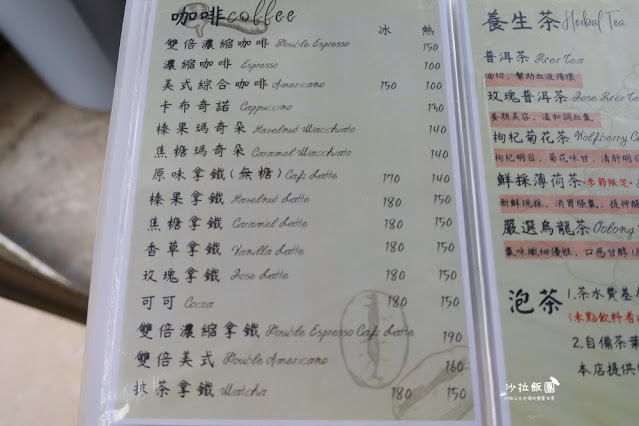 咖啡coffee
冰 熱
雙倍濃縮咖啡 Double Espresso 150
濃縮咖啡 Espresso 100
美式綜合咖啡 Americano 150 100
卡布奇諾 Cappuccino 140
榛果瑪奇朵 Hazelnut Macchiato 140
焦糖瑪奇朵 Caramel Macchiato 140
原味拿鐵(無糖) Cafe Latte 170 140
榛果拿鐵 Hazelnut Latte 180 150
焦糖拿鐵 Caramel Latte 180 150
香草拿鐵 Vanilla Latte 180 150
玫瑰拿鐵 Rose Latte 180 150
可可 Cocoa 180 150
雙倍濃縮拿鐵 Double Espresso Cafe Latte 190
雙倍美式 Double Americano 160
抹茶拿鐵 Matcha 180 150
養生茶 Herbal Tea
普洱茶 Puer Tea
油切，幫助血液循環
玫瑰普洱茶 Rose Puer Te
養顏美容，溫和調血氣
枸杞菊花茶 Wolfberry C
枸杞明目，菊花味甘，清肝明目
鮮採薄荷茶*季節限定*
新鮮現採，消胃脹氣，提神醒
嚴選烏龍茶 Oolong
氣味纖細優雅，口感甘醇
泡茶
1.茶水費基本
(未點飲料者以
2.自備茶葉
本店提供
沙拉飯團